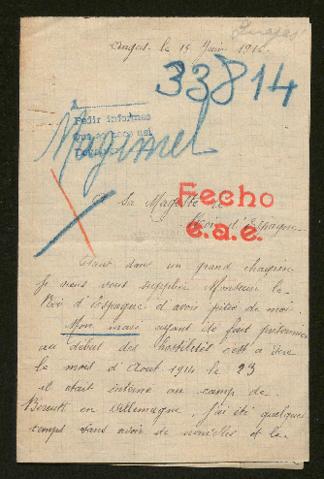 Angers le 15 Juin 1916
33814
A
Pedir informes
Mazimel
A Sa Majesté le
Roi d'Espagne
Fecho
e.a.e.
Etant dans un grand chagrin
je viens vous supplier Monsieur le
Roi d'Espagne d'avoir pitié de moi.
Mon mari ayant été fait prisonnier
au début des hostilités c'est à dire
le mois d'Aout 1914 le 23
il était interné au camp de
en Allemagne, j'ai été quelque
temps sans avoir de nouvelles et la